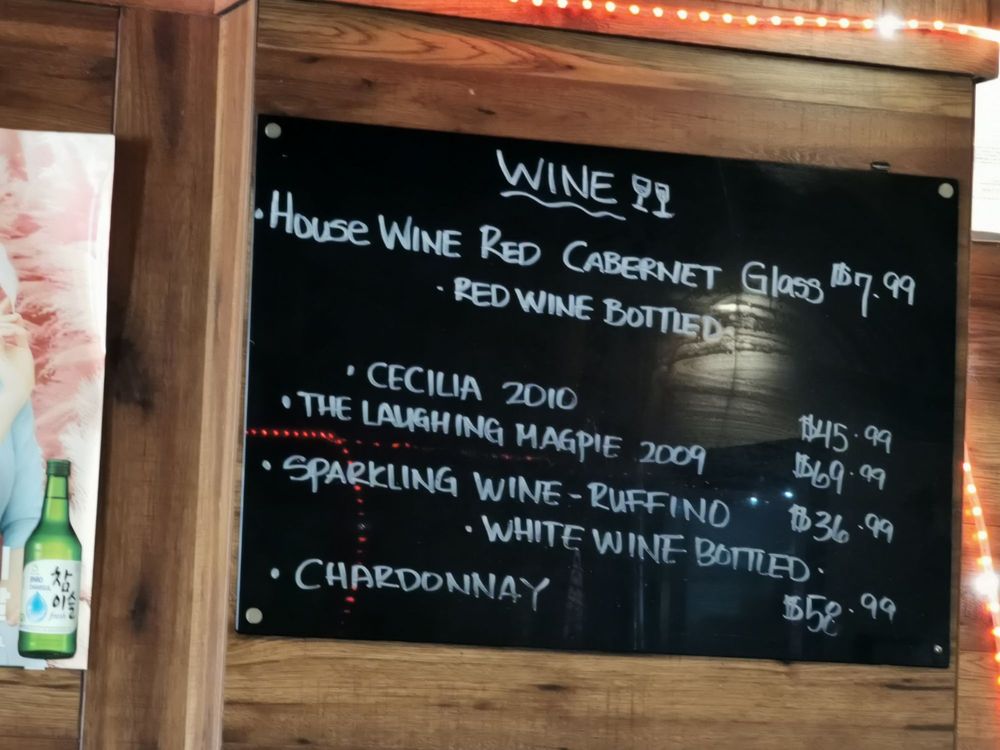 WINE
• House Wine Red Cabernet Glass $7.99
• RED WINE BOTTLED •
• CECILIA 2010 $45.99
• THE LAUGHING MAGPIE 2009 $69.99
• SPARKLING WINE - RUFFINO $36.99
• WHITE WINE BOTTLED •
• CHARDONNAY $58.99
참
이슬
fresh